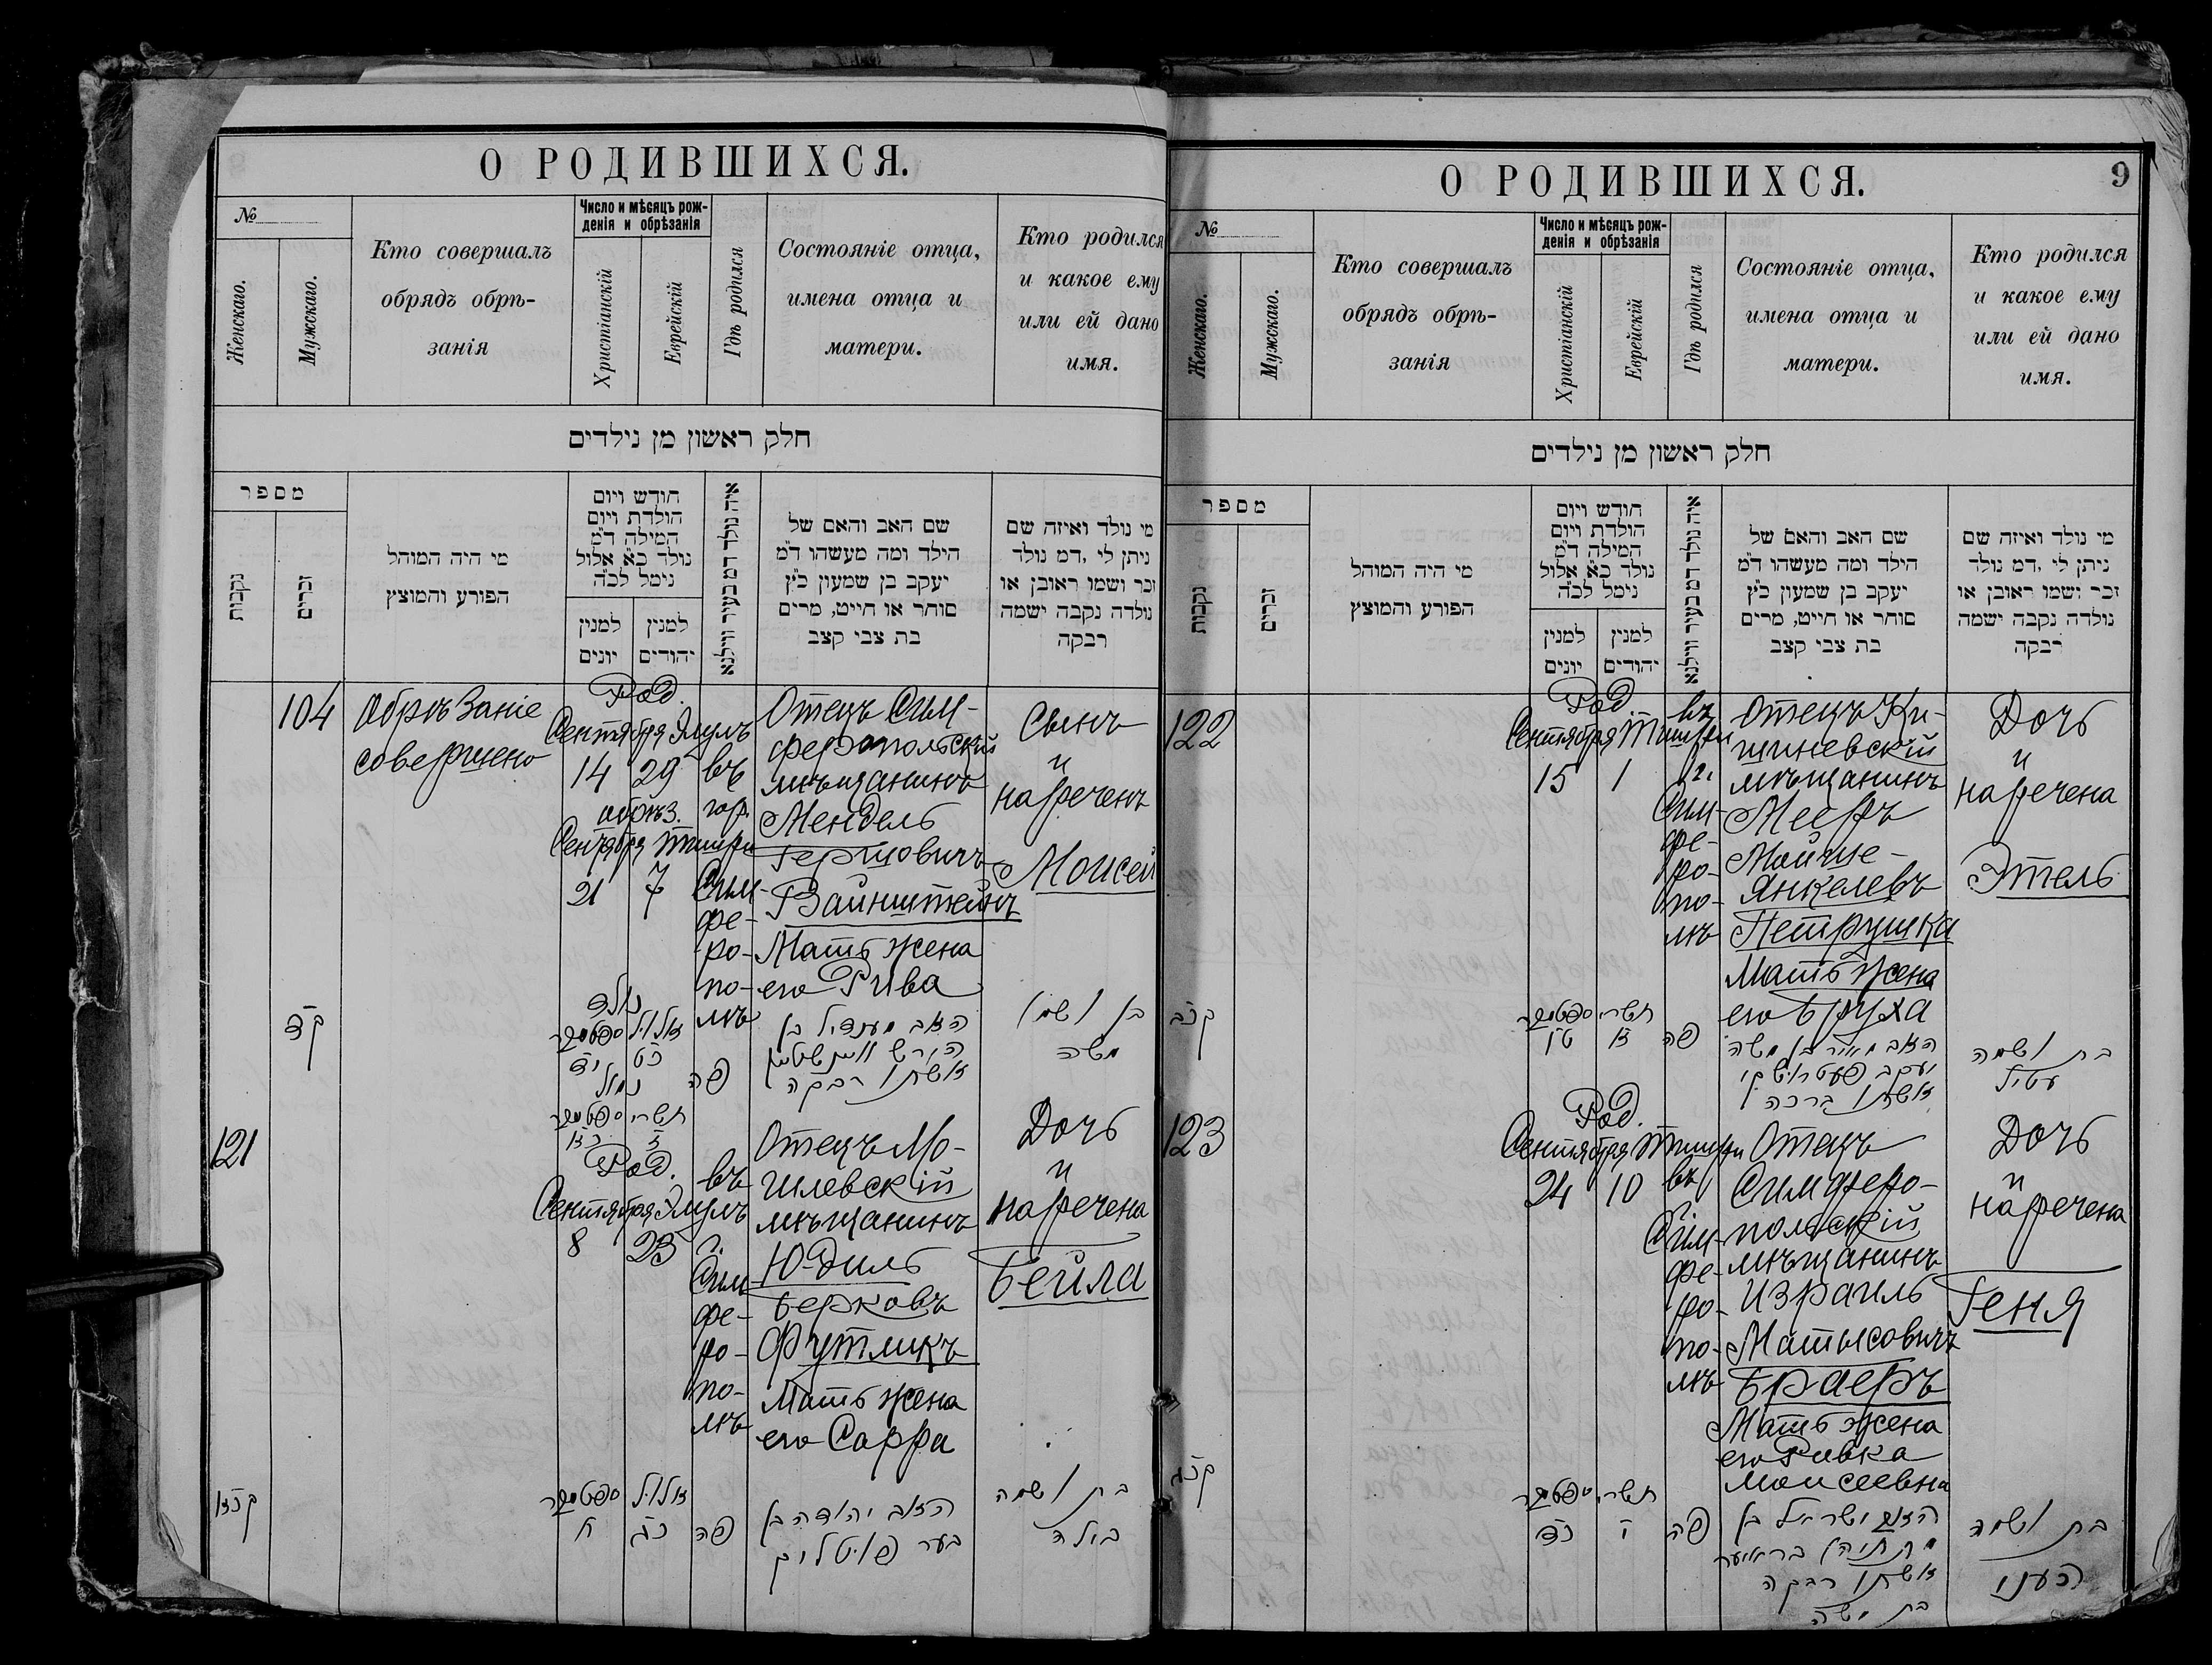 О РОДИВШИХСЯ.
№
Женскаго.
Мужскаго.
Кто совершалъ
обрядъ обрѣ-
занія
Число и мѣсяцъ рож-
денія и обрѣзанія
Христіанскій
Еврейскій
Гдѣ родился
Состояніе отца,
имена отца и
матери.
Кто родился
и какое ему
или ей дано
имя.
חלק ראשון מן נילדים
מספר
נקבות
זכרים
מי היה המוהל
הפורע והמוצץ
חודש ויום
הולדת ויום
המילה ד"מ
נולד כ"א אלול
נימל לכ"ה
למנין
יונים
למנין
יהודים
איה נולד דמ בעיר ווילנא
שם האב והאם של
הילד ומה מעשהו ד"מ
יעקב בן שמעון כ"ץ
סוחר או חייט, מרים
בת צבי קצב
מי נולד ואיזה שם
ניתן לי ,דמ נולד
זכר ושמו ראובן או
נולדה נקבה ישמה
רבקה
104
Обрѣзаніе
совершено
Род.
Сентября Элулъ
14 29
обрѣз.
Сентября Тишри
21 7
въ
гор.
Сим-
фе-
ро-
по-
лѣ
Отецъ Сим-
феропольскій
мѣщанинъ
Мендель
Герцовичъ
Вайнштейнъ
Мать жена
его Рива
Сынъ
и
нареченъ
Моисей
קד
נולד
ספטמבר אלול
יד כט
נמול
ספטמבר תשרי
כא ז
פה
האב מענדיל בן
הירש וויינשטיין
אשתו רבקה
בן ושמו
משה
121
Род.
Сентября Элулъ
8 23
въ
г.
Сим
фе-
ро-
по-
лѣ
Отецъ Мо-
гилевскій
мѣщанинъ
Юдиль
Берковъ
Футликъ
Мать жена
его Сарра
Дочь
и
наречена
Бейла
קכא
ספטמבר אלול
ח כג
פה
האב יהודה בן
בער פוטליק
בת ושמה
בילה
О РОДИВШИХСЯ.
9
№
Женскаго.
Мужскаго.
Кто совершалъ
обрядъ обрѣ-
занія
Число и мѣсяцъ рож-
денія и обрѣзанія
Христіанскій
Еврейскій
Гдѣ родился
Состояніе отца,
имена отца и
матери.
Кто родился
и какое ему
или ей дано
имя.
חלק ראשון מן נילדים
מספר
נקבות
זכרים
מי היה המוהל
הפורע והמוצץ
חודש ויום
הולדת ויום
המילה ד"מ
נולד כ"א אלול
נימל לכ"ה
למנין
יונים
למנין
יהודים
איה נולד דמ בעיר ווילנא
שם האב והאם של
הילד ומה מעשהו ד"מ
יעקב בן שמעון כ"ץ
סוחר או חייט, מרים
בת צבי קצב
מי נולד ואיזה שם
ניתן לי ,דמ נולד
זכר ושמו ראובן או
נולדה נקבה ישמה
רבקה
122
Род
Сентября Тишри
15 1
въ
г.
Сим-
фе-
ро-
по-
лѣ
Отецъ Ки-
шиневскій
мѣщанинъ
Мееръ
Мойше-
Янкелевъ
Петрушка
Мать жена
его Бруха
Дочь
и
наречена
Этель
קכב
ספטמבר תשרי
טו א
פה
האב מאיר בן משה
יעקב פעטרושקי
אשתו ברכה
בת ושמה
עטיל
123
Род.
Сентября Тишри
24 10
въ
г.
Сим-
фе-
ро-
по-
лѣ
Отецъ
Симферо-
польскій
мѣщанинъ
Израиль
Матысовичъ
Браеръ
Мать жена
его Ривка
Моисеевна
Дочь
и
наречена
Геня
קכג
ספטמבר תשרי
כד י
פה
האב ישראל בן
מתתיהו בראיער
אשתו רבקה
בת משה
בת ושמה
העני